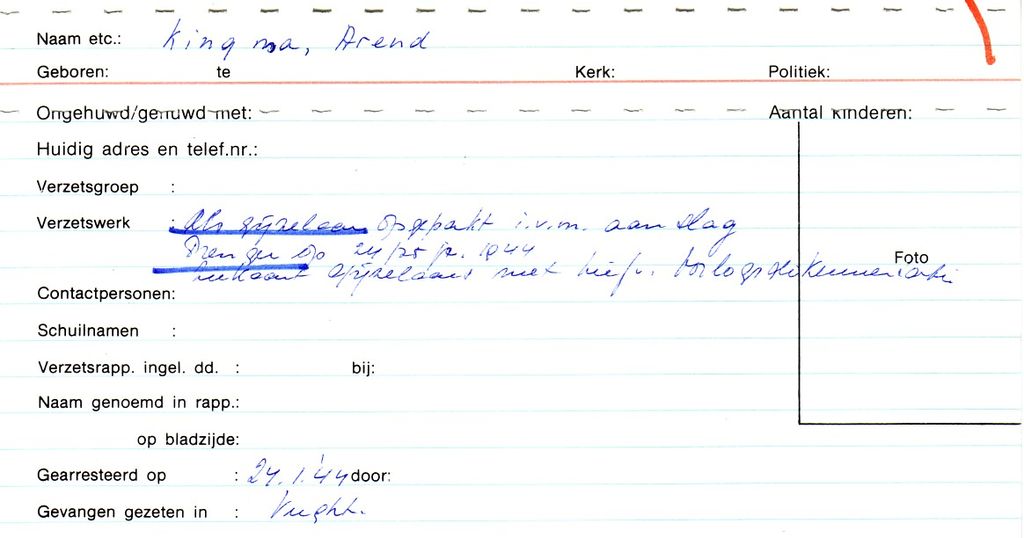 Naam etc.: Kingma, Arend
Geboren: te Kerk: Politiek:
Ongehuwd/gehuwd met: Aantal kinderen:
Huidig adres en telef.nr.:
Verzetsgroep :
Verzetswerk : Als gijzelaar opgepakt i.v.m. aanslag
op 24/25 1944
gijzelaars met
Foto
Contactpersonen:
Schuilnamen :
Verzetsrapp. ingel. dd. : bij:
Naam genoemd in rapp.:
op bladzijde:
Gearresteerd op : 24.1.'44 door:
Gevangen gezeten in : Vught.